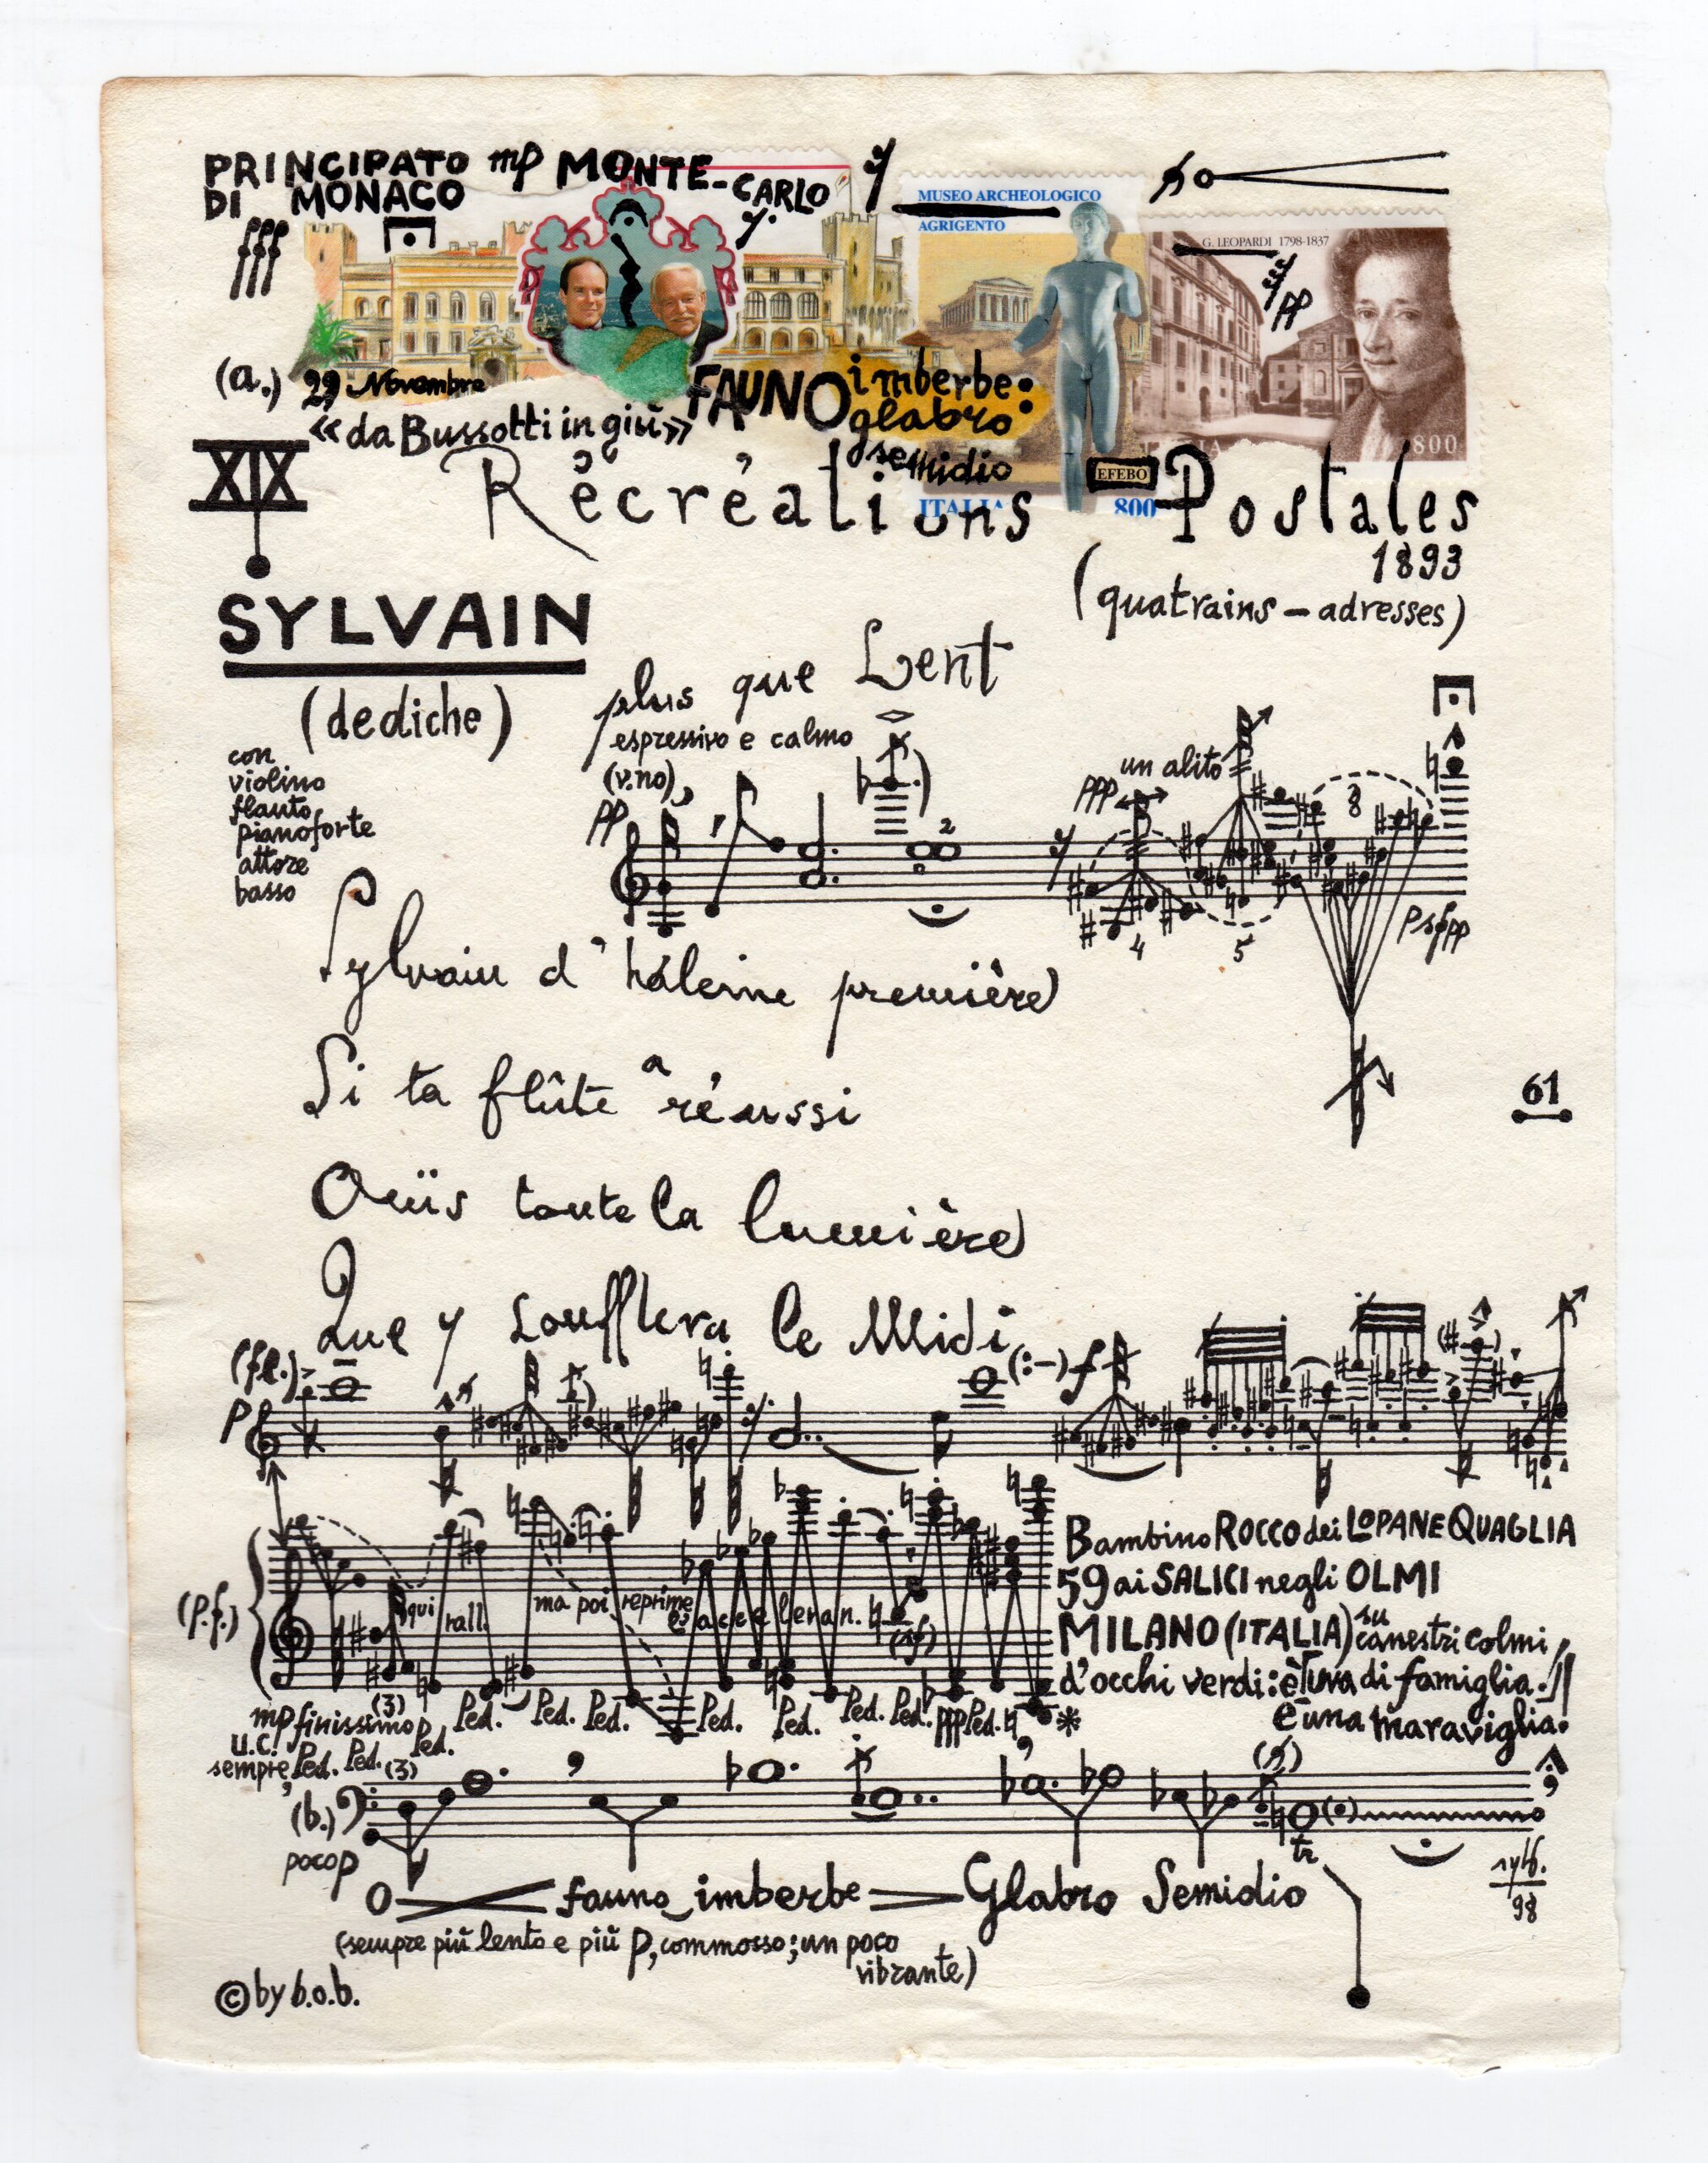 PRINCIPATO mp MONTE-CARLO
DI MONACO
fff
MUSEO ARCHEOLOGICO
AGRIGENTO
G. LEOPARDI 1798-1837
pp
(a.) 29 Novembre
«da Bussotti in giù»
FAUNO imberbe:
glabro:
semidio
EFEBO
ITALIA 800
800
XIX
Récréations Postales
1893
(quatrains – adresses)
SYLVAIN
(dediche)
con
violino
flauto
pianoforte
attore
basso
plus que Lent
espressivo e calmo
(v.no)
pp
2
ppp
un alito
8
4
5
Sylvain d'haleine première
Si ta flûte a réussi
Ouïs toute la lumière
Que y soufflera le Midi
61
(fl.)
p
f
(p.f.)
qui rall.
ma poi reprime
accelleran.
(sf)
Bambino ROCCO dei LOPANE QUAGLIA
59 ai SALICI negli OLMI
MILANO (ITALIA) su canestri colmi
d'occhi verdi: è Luva di famiglia.
È una maraviglia.
mp finissimo (3) Ped. Ped. Ped. Ped. Ped. Ped. Ped. Ped. ppp Ped. *
u.c.
sempre, Ped. Ped. (3)
(b.)
poco p
tr
fauno imberbe Glabro Semidio
(sempre più lento e più p, commosso; un poco
vibrante)
sylb.
98
© by b.o.b.